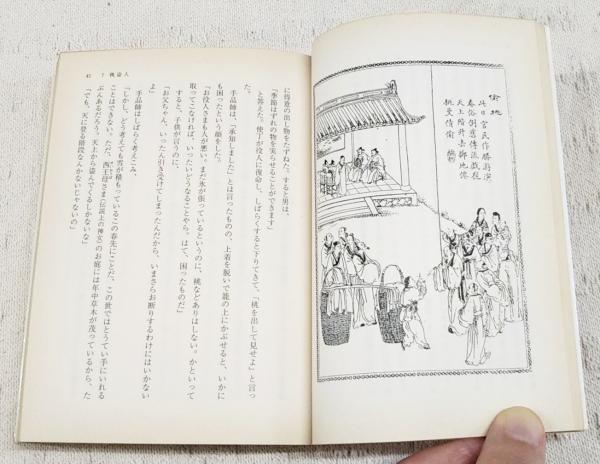 偸桃
に得意の出し物をたずねた。すると男は、
「季節はずれの物を実らせることができます」
と答えた。使丁が役人に復命し、しばらくすると下りてきて、「桃を出して見せよ」と言っ
た。
手品師は、「承知しました」とは言ったものの、上着を脱いで籠の上にかぶせると、いかに
も困ったという顔をした。
「お役人さまも人が悪い。まだ氷が張っているというのに、桃などありはしない。かといって
取ってこなければ、いったいどうなることやら。はて、困ったものだ」
すると、子供が言うのに、
「お父ちゃん、いったん引き受けてしまったんだから、いまさらお断りするわけにはいかない
よ」
手品師はしばらく考えこみ、
「しかし、どう考えても雪が積もっているこの春先にことだ、この世ではとうてい手にいれる
ことはできない。ただ、西王母さま(伝説上の神女)のお庭には年中草木が茂っているから、た
ぶんあるだろう。天上から盗んでくるしかないな」
「でも、天に登る階段なんかないじゃないの」
41 7 桃盗人